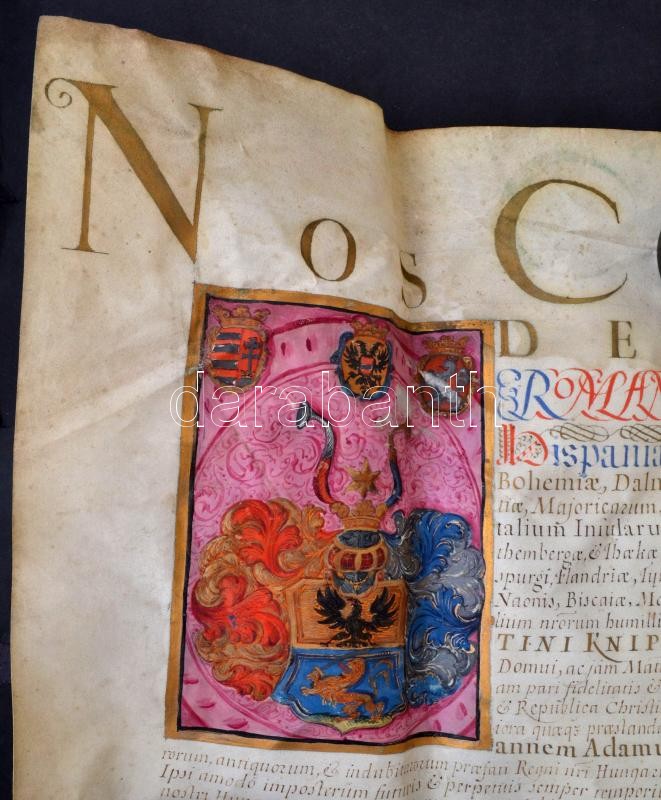 NOS C
DE
ROMAN
Hispania
Bohemiæ, Dalm
tiæ, Majoricarum,
talium Insularu
spurgi, Flandriæ, Ty
Naonis, Biscaiæ, Mo
lium nrorum humilli
TINI KNIP
Domui, ac jam Mat
am pari fidelitatis &
& Republica Christi
iora quæqз præstand
annem Adamu
rorum, antiquorum, & indubitatorum præfati Regni nri Hungar
Ipsi amodo imposterum futuris & perpetuis semper tempori
nostri Hun
darabanth